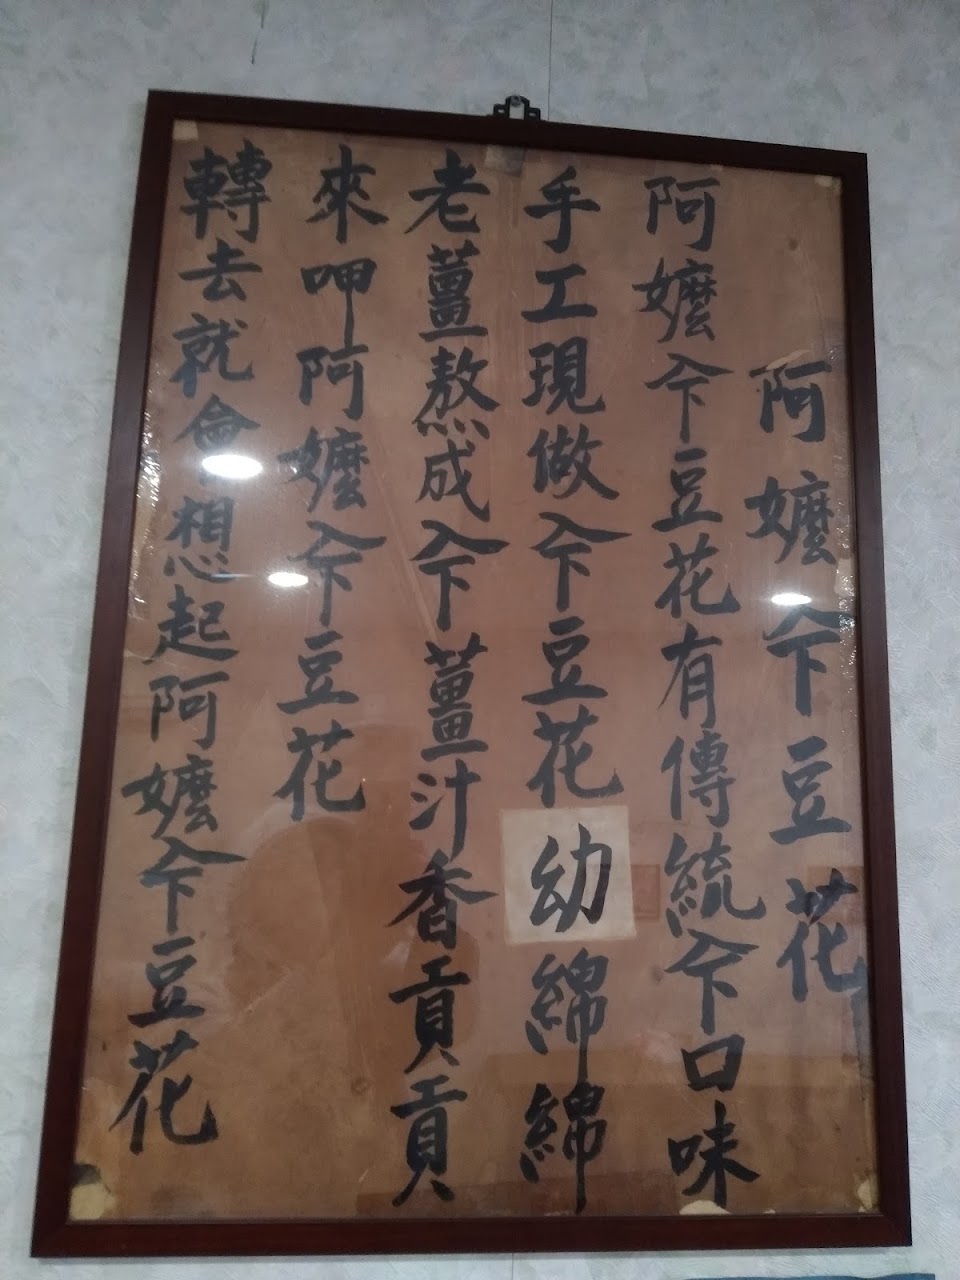 阿嬤仒豆花
阿嬤仒豆花有傳統仒口味
手工現做仒豆花幼綿綿
老薑熬成仒薑汁香貢貢
來呷阿嬤仒豆花
轉去就會想起阿嬤仒豆花